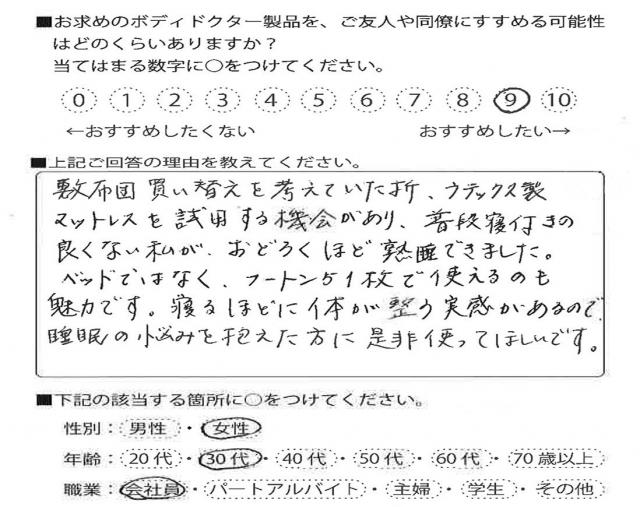 ■お求めのボディドクター製品を、ご友人や同僚にすすめる可能性
はどのくらいありますか？
当てはまる数字に○をつけてください。
0 1 2 3 4 5 6 7 8 9 10
←おすすめしたくない おすすめしたい→
■上記ご回答の理由を教えてください。
敷布団買い替えを考えていた折、ラテックス製
マットレスを試用する機会があり、普段寝付きの
良くない私が、おどろくほど熟睡できました。
ベッドではなく、フートン51枚で使えるのも
魅力です。寝るほどに体が整う実感があるので、
睡眠の悩みを抱えた方に是非使ってほしいです。
■下記の該当する箇所に○をつけてください。
性別：男性・女性
年齢：20代・30代・40代・50代・60代・70歳以上
職業：会社員・パートアルバイト・主婦・学生・その他